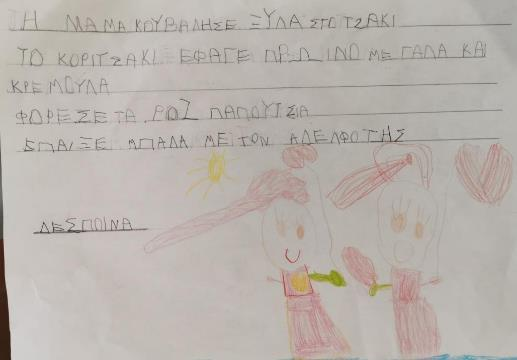 Η ΜΑΜΑ ΚΟΥΒΑΛΗΣΕ ΞΥΛΑ ΣΤΟ ΤΖΑΚΙ
ΤΟ ΚΟΡΙΤΣΑΚΙ ΕΦΑΓΕ ΠΡΩΙΝΟ ΜΕ ΓΑΛΑ ΚΑΙ
ΚΡΕΜΟΥΛΑ
ΦΟΡΕΣΕ ΤΑ ΡΟΖ ΠΑΠΟΥΤΣΙΑ
ΕΠΑΙΞΕ ΜΠΑΛΑ ΜΕ ΤΟΝ ΑΔΕΛΦΟ ΤΗΣ
ΔΕΣΠΟΙΝΑ